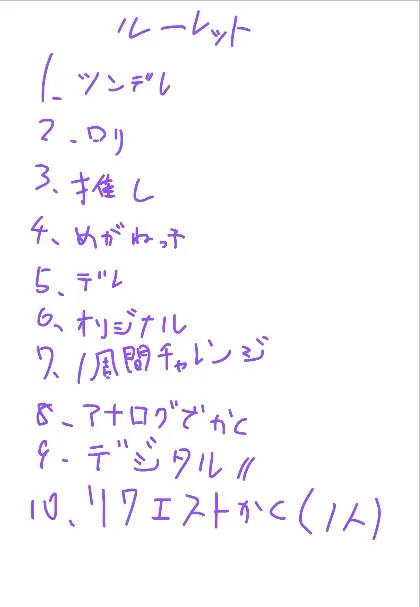 ルーレット
1. ツンデレ
2. ロリ
3、推し
4、めがねっ子
5、デレ
6、オリジナル
7、1周間チャレンジ
8、アナログでかく
9、デジタル〃
10、リクエストかく(1人)